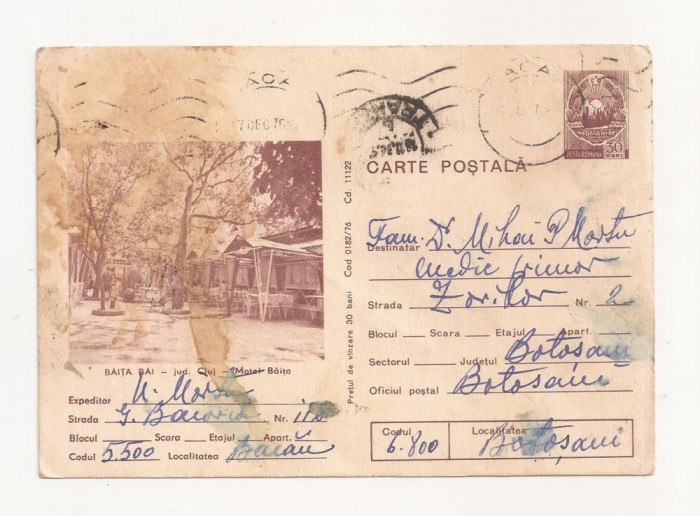 BACA
7 DEC 76
BACA
POSTA ROMANA 30 BANI
CARTE POȘTALĂ
BĂIȚA BĂI - jud. Cluj - Motel Băița
Prețul de vînzare 30 bani Cod 0182/76 Cd. 11122
Expeditor M. Morșu
Strada G. Bacovia Nr.
Blocul Scara Etajul Apart.
Codul 5.500 Localitatea Bacău
Fam. Dr. Mihai P Morșu
Destinatar
medic primar
Strada Nr. 2
Blocul Scara Etajul Apart.
Sectorul Județul Botoșani
Oficiul poștal Botoșani
Codul Localitatea
6.800 Botoșani